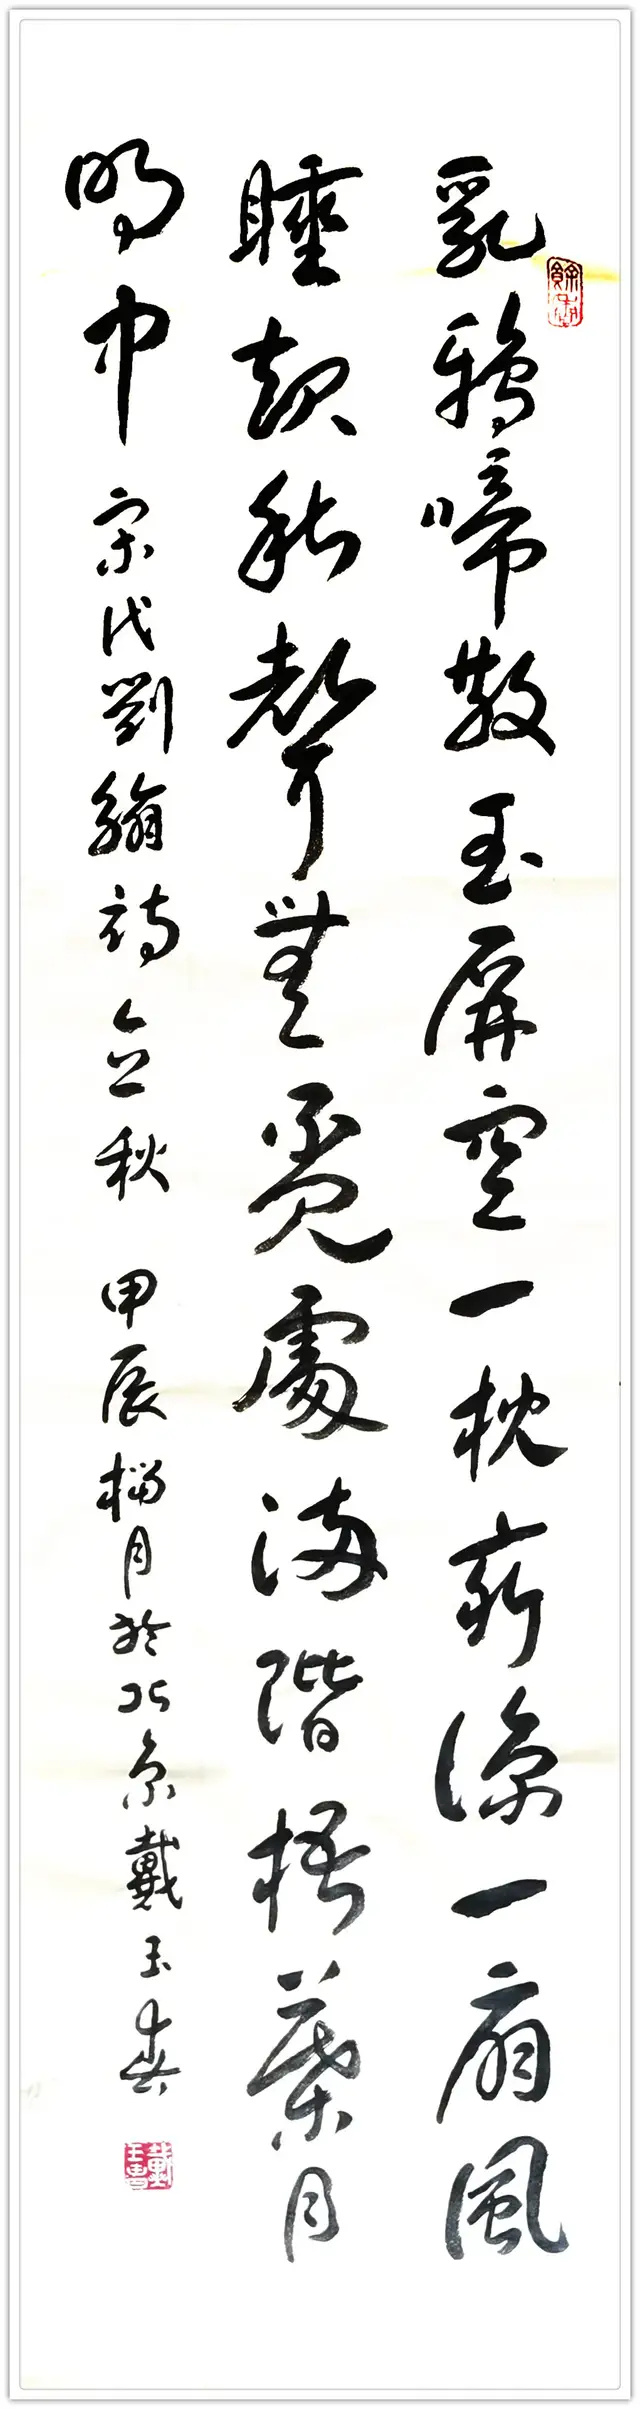 乳鴉啼散玉屏空一枕新涼一扇風
睡起秋聲無覓處滿階梧葉月
明中
宋代劉翰詩立秋 甲辰榴月於北京戴玉春